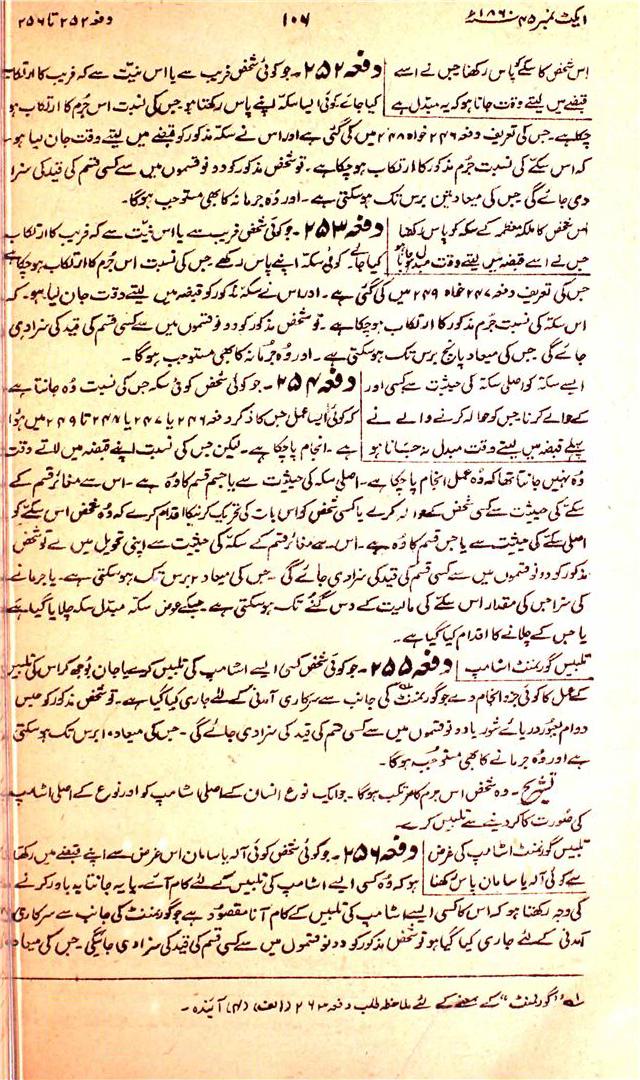 ایکٹ نمبر ۴۵ ۱۸۶۰ء ۱۰۶ دفعہ ۲۵۲ تا ۲۵۶
اس شخص کا سکے کو پاس رکھنا جس نے اسے دفعہ ۲۵۲۔ جو کوئی شخص فریب سے یا اس نیت سے کہ فریب کا ارتکاب
قبضے میں لیتے وقت جانا ہو کہ یہ مبدل ہے کیا جائے کوئی ایسا سکہ اپنے پاس رکھتا ہو جس کی نسبت اس جُرم کا ارتکاب ہو
چکا ہے۔ جس کی تعریف دفعہ ۲۴۶ خواہ ۲۴۸ میں کی گئی ہے اور اس نے سکہ مذکور کو قبضے میں لیتے وقت جان لیا ہو
کہ اس سکے کی نسبت جرم مذکور کا ارتکاب ہو چکا ہے۔ تو شخص مذکور کو دونو قسموں میں سے کسی قسم کی قید کی سزا
دی جائے گی جس کی میعاد تین برس تک ہو سکتی ہے۔ اور وُہ جرمانہ کا بھی مستوجب ہوگا۔
اس شخص کا ملکہ معظمہ کے سکہ کو پاس رکھنا دفعہ ۲۵۳۔ جو کوئی شخص فریب سے یا اس نیت سے کہ فریب کا ارتکاب
جس نے اسے قبضہ میں لیتے وقت مبدل جانا ہو کیا جائے۔ کوئی سکہ اپنے پاس رکھے جس کی نسبت اس جُرم کا ارتکاب ہو چکا ہے
جس کی تعریف دفعہ ۲۴۷ خواہ ۲۴۹ میں کی گئی ہے۔ اور اس نے سکہ مذکور کو قبضہ میں لیتے وقت جان لیا ہو۔ کہ
اس سکہ کی نسبت جُرم مذکور کا ارتکاب ہو چکا ہے۔ تو شخص مذکور کو دونو قسموں میں سے کسی قسم کی قید کی سزا دی
جائے گی جس کی میعاد پانچ برس تک ہو سکتی ہے۔ اور وُہ جُرمانہ کا بھی مستوجب ہوگا۔
ایسے سکہ کو اصلی سکہ کی حیثیت سے کسی اور دفعہ ۲۵۴۔ جو کوئی شخص کوئی سکہ جس کی نسبت وُہ جانتا ہے
کے حوالے کرنا جس کو حوالہ کرنے والے نے کہ کوئی ایسا عمل جس کا ذکر دفعہ ۲۴۶ یا ۲۴۷ یا ۲۴۸ تا ۲۴۹ میں ہوا
پہلے قبضہ میں لیتے وقت مبدل نہ جانا ہو ہے۔ انجام پا چکا ہے۔ لیکن جس کی نسبت اپنے قبضہ میں لاتے وقت
وُہ نہیں جانتا تھا کہ وُہ عمل انجام پا چکا ہے۔ اصلی سکہ کی حیثیت سے یا جسم قسم کا وُہ ہے۔ اس سے مغائر قسم کے
سکے کی حیثیت سے کسی شخص کے حوالہ کرے یا کسی شخص کو اس بات کی تحریک کرنیکا اقدام کرے کہ وُہ شخص اس سکے کو
اصلی سکے کی حیثیت سے یا جس قسم کا وُہ ہے۔ اس سے مغائر قسم کے سکہ کی حیثیت سے اپنی تحویل میں لے تو شخص
مذکور کو دونو قسموں میں سے کسی قسم کی قید کی سزا دی جائے گی۔ جس کی میعاد ۲ برس تک ہو سکتی ہے۔ یا جرمانے
کی سزا جس کی مقدار اس سکے کی مالیت کے دس گنے تک ہو سکتی ہے جسکے عوض سکہ مبدل سکہ چلایا گیا ہے
یا جس کے چلانے کا اقدام کیا گیا ہے۔
تلبیس گورنمنٹ اشامپ دفعہ ۲۵۵۔ جو کوئی شخص کسی ایسے اشامپ کی تلبیس کرے یا جان بُوجھ کر اس کی تلبیس
کے عمل کا کوئی جزو انجام دے جو گورنمنٹ کی جانب سے سرکاری آمدنی کے لئے جاری کیا گیا ہے۔ تو شخص مذکور کو حبس
دوام بعبور دریائے شور یا دونو قسموں میں سے کسی قسم کی قید کی سزا دی جائے گی۔ جس کی میعاد ۱۰ برس تک ہو سکتی
ہے اور وُہ جرمانے کا بھی مستوجب ہوگا۔
تشریح۔ وہ شخص اس جرم کا مرتکب ہوگا۔ جو ایک نوع انسان کے اصلی اشامپ کو اور نوع کے اصلی اشامپ
کی صُورت کا کر دینے سے تلبیس کرے۔
تلبیس گورنمنٹ اشامپ کی غرض دفعہ ۲۵۶۔ جو کوئی شخص کوئی آلہ یا سامان اس غرض سے اپنے قبضے میں رکھتا
سے کوئی آلہ یا سامان پاس رکھنا ہو کہ وُہ کسی ایسے اشامپ کی تلبیس کے لئے کام آئے۔ یا یہ جانتا یہ باور کرنے
کی وجہ رکھتا ہو کہ اس کا کسی ایسے اشامپ کی تلبیس کے کام آنا مقصود ہے جو گورنمنٹ کی جانب سے سرکاری
آمدنی کے لئے جاری کیا گیا ہو تو شخص مذکور کو دونو قسموں میں سے کسی قسم کی قید کی سزا دی جائیگی۔ جس کی میعاد
۱؎ "گورنمنٹ" کے معنے کے لئے ملاحظہ طلب دفعہ ۲۶۳ (الف) (۴) آیندہ۔